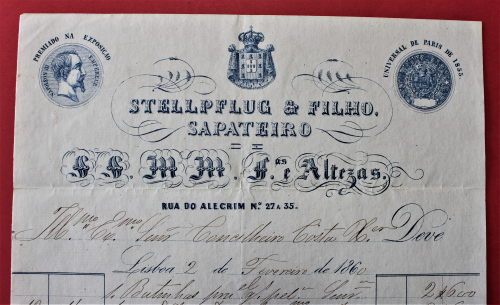 PREMIADO NA EXPOSIÇÃO
UNIVERSAL DE PARIS DE 1855.
STELLPFLUG & FILHO,
SAPATEIRO
DE
SS. MM. F.as e Altezas.
RUA DO ALECRIM N.os 27 A 35.
Ill.mo Ex.mo Snr Conselheiro Costa Deve
Lisboa 2 de Fevereiro de 1860
Butinhas 2$600